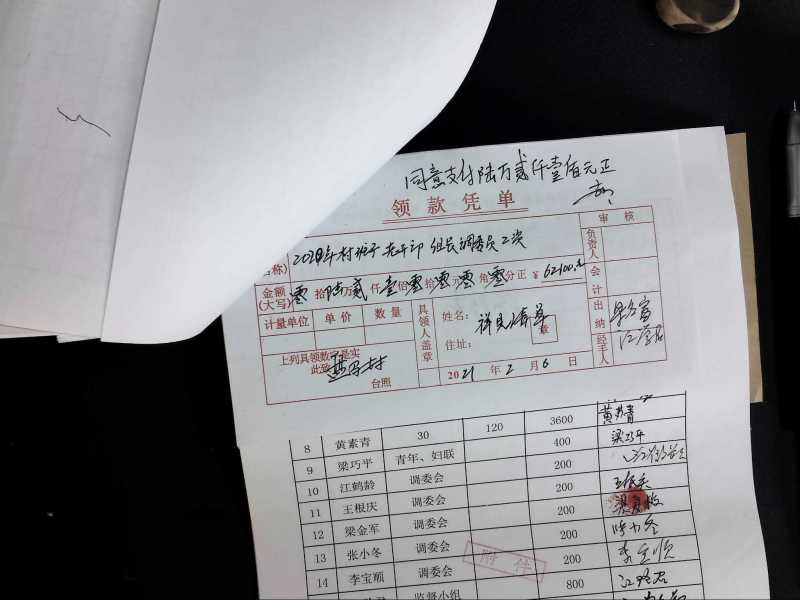 同意支付陆万贰仟壹佰元正
领款凭单
名称)
2020年村班子 老干部 组长 调委员工资
审核
金额(大写) 零拾陆万贰仟壹佰零拾零元零角零分正 ¥62100.00
负责人
会计
计量单位 单价 数量
具领人盖章
姓名: 详见清单
章
住址:
出纳
经手人
上列具领数 是实
此致
台照
2021年2月6日
8 黄素青 30 120 3600 黄素青
9 梁巧平 青年、妇联 400 梁巧平
10 江鹤龄 调委会 200
11 王根庆 调委会 200 王根庆
12 梁金军 调委会 200
13 张小冬 调委会 200 张小冬
14 李宝顺 调委会 200 李宝顺
监督小组 800
附件